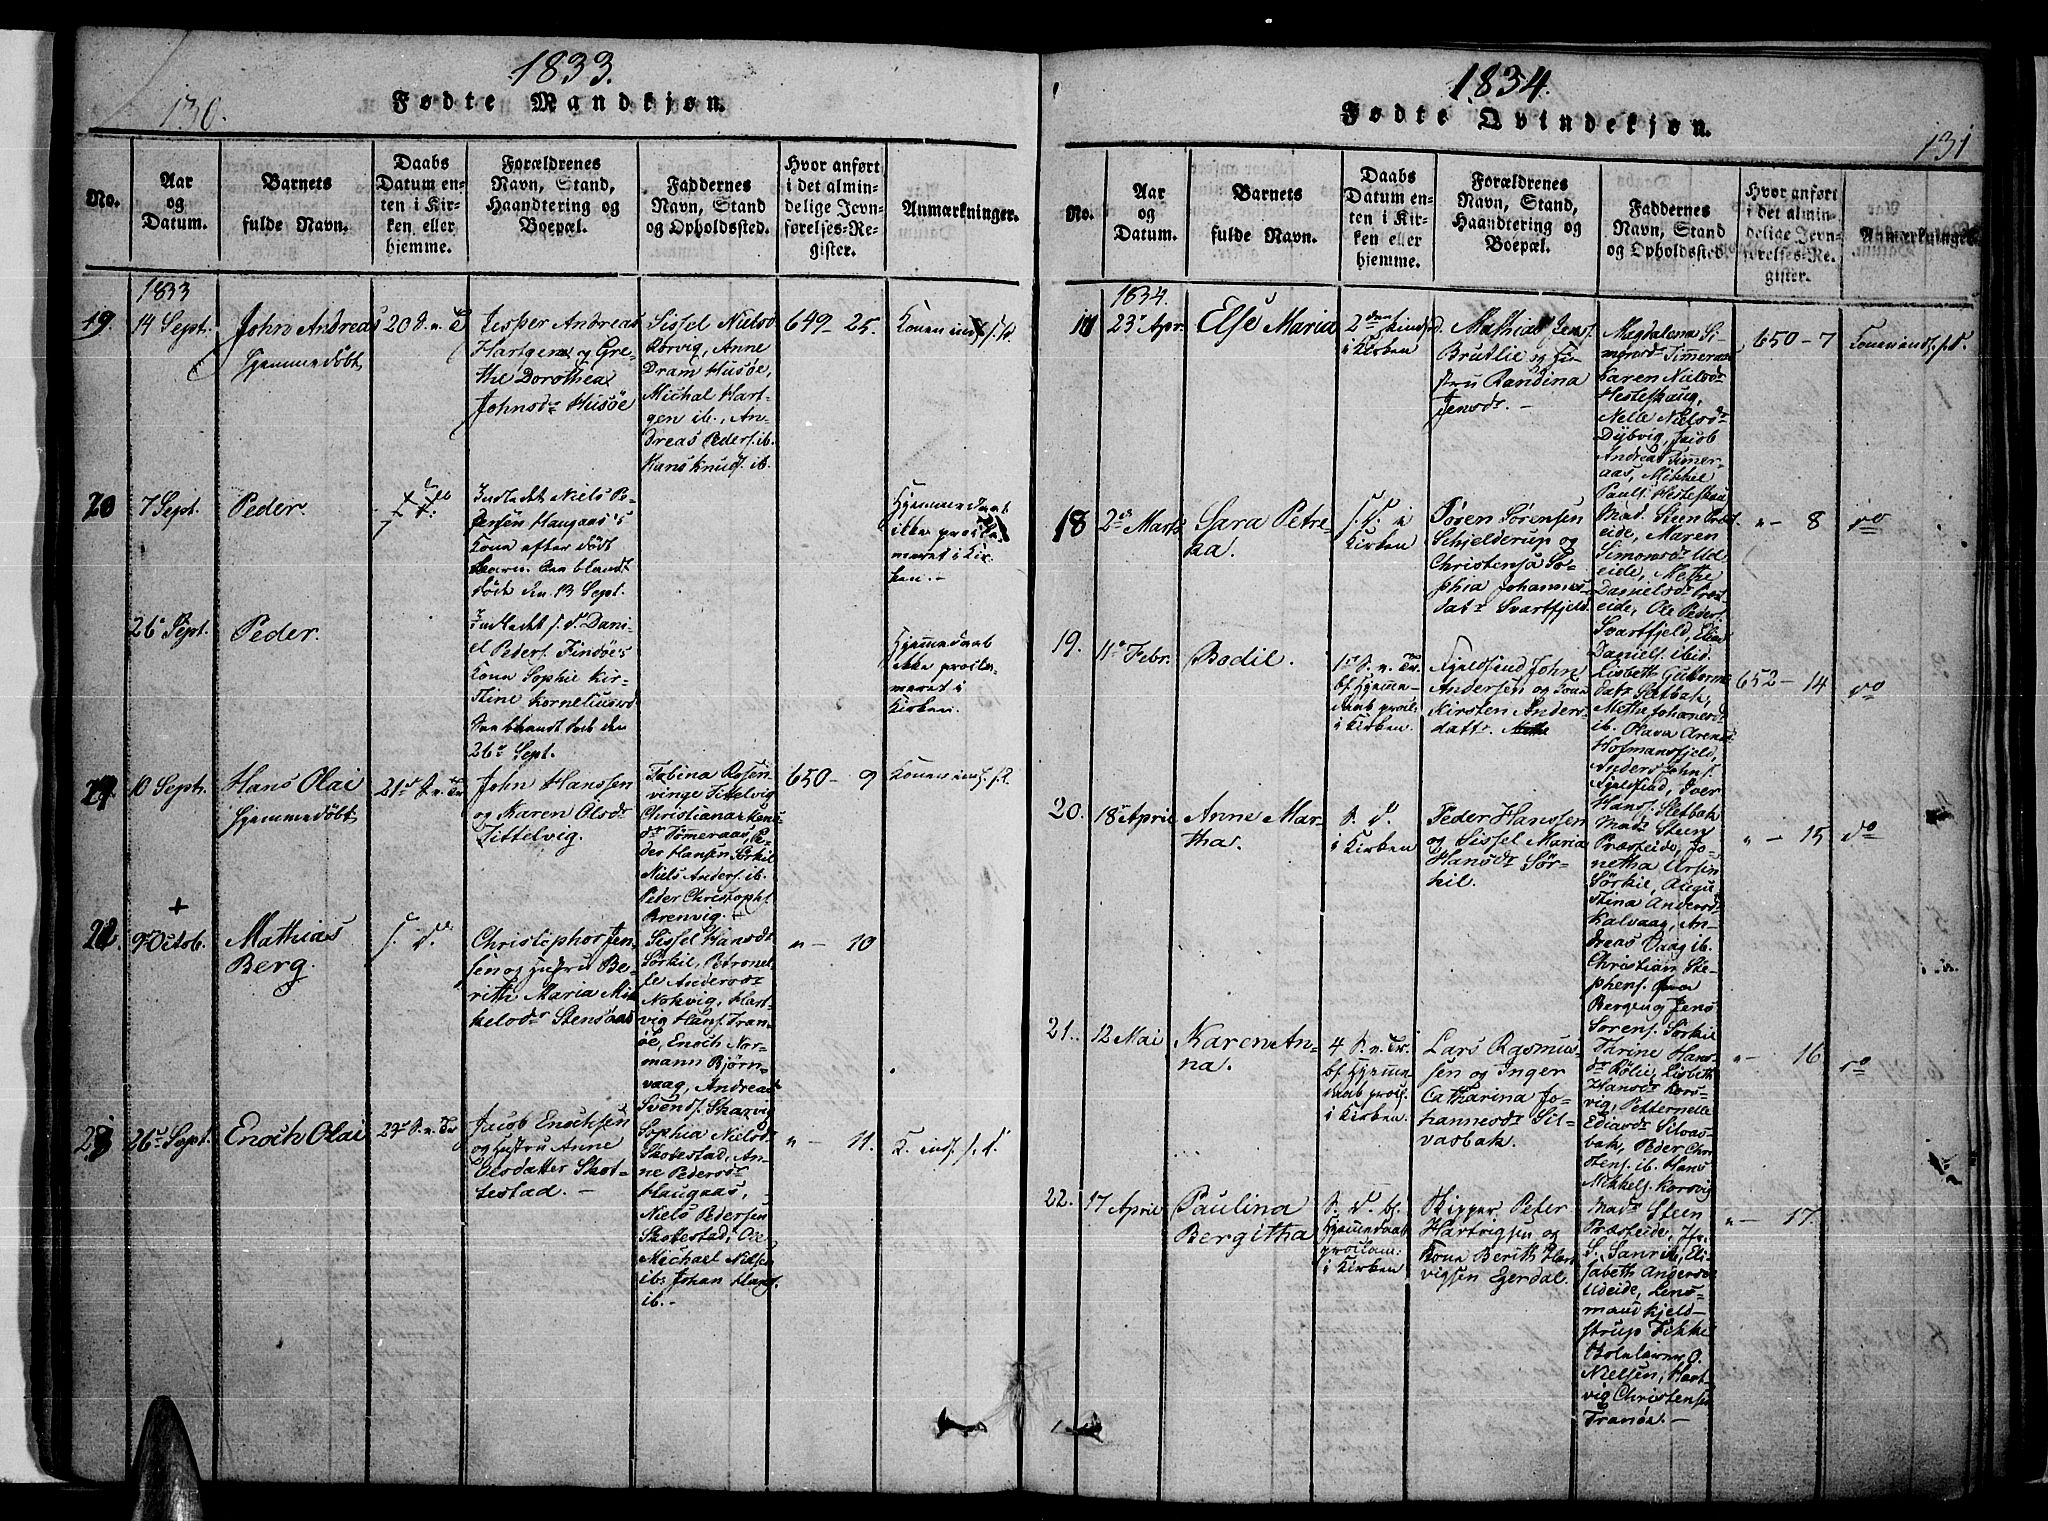 130.
1833.
Fødte Mandkjøn.
No.
Aar
og
Datum.
Barnets
fulde Navn.
Daabs
Datum en-
ten i Kir-
ken eller
hjemme.
Forældrenes
Navn, Stand,
Haandtering og
Boepæl.
Faddernes
Navn, Stand
og Opholdssted.
Hvor anført
i det almin-
delige Jevn-
førelses-Re-
gister.
Anmærkninger.
1833
19.
14 Sept.
John Andreas
Hjemmedøbt
Jesper Andreas
Hartgen og Gre-
the Dorothea
Johnsdr Husøe
Sissel Nielsd
Korvig, Anne
Dram Husøe,
Michal Hart-
gen ib., An-
dreas Peders. ib.
Hans Knuds. ib.
649 - 25.
20
7 Sept.
Peder.
Indledet Niels Pe-
dersen Haugaas's
Kone efter født
Barn. Paa blandt
døde den 13 Sept.
Hjemmedaab
ikke procla-
meret i Kir-
ken. -
26 Sept.
Peder.
Indledet s. D. Dani-
el Peders. Findøe's
Kone Sophie Kir-
stine Korneliusd
Paa blandt døde den
26de Sept.
Hjemmedaab
ikke procla-
meret i
Kirken.
21
10 Sept.
Hans Olai
Hjemmedøbt
John Hanssen
og Karen Olsdr
Tittelvig.
Tobina Rosen-
vinge Tittelvig
Tømmeraas, Pe-
der Hansen Sørkil
Niels Anders. ib.
Peder Christoph.
Brenvig.
650 - 9
22.
9 Octob.
Mathias
Berg.
s. D.
Christopher Jen-
sen og Hustru Be-
rith Maria Mik-
kelsdr Stensaas
Sissel Hansdr
Sørkil, Petronel-
le Andersdr
Nohvig, Hart-
vig Hans. Tran-
øe, Enoch Nor-
mann Bjørn-
vaag, Andreas
Svends. Skarvig
" - 10
23
26 Sept.
Enoch Olai
Jacob Enochsen
og Hustru Anne
Olsdatter Skot-
testad. -
Sophia Nielsd
Skotestad, An-
ne Pedersdr
Haugaas,
Niels Pedersen
Skotestad, Ole
Michael Nielsen
ib. Johan Hans.
ib. -
" - 11.
K. inds. s. D.
131
1834.
Fødte Qvindekjøn.
No.
Aar
og
Datum.
Barnets
fulde Navn.
Daabs
Datum en-
ten i Kir-
ken eller
hjemme.
Forældrenes
Navn, Stand,
Haandtering og
Boepæl.
Faddernes
Navn, Stand
og Opholdssted.
Hvor anført
i det almin-
delige Jevn-
førelses-Re-
gister.
Anmærkninger.
1834.
23 Apr.
Else Maria
i Kirken
Mathias Jens.
Brutlie og Hu-
stru Randina
Jensdr. -
Magdalena Si-
monsdr Timeraas
Karen Nielsdr
Hesteskaug,
Nelle Nielsdr
Dybvig, Jacob
Andreas Timer-
aas, Mikkel
Pauls. Hesteskau
650 - 7
18
2 Marts
Sara Petre-
na.
s. D. i
Kirken
Søren Sørensen
Schjelderup og
Christensa So-
phia Johannes-
datr Svartfjeld.
Mad. Steen Præst-
eide, Maren
Simonsdr Ud-
eide, Methe
Danielsdr Præst-
eide, Ole Peders.
Svartfjeld, Elias
Daniels. ibid.
" - 8
do
19.
11 Febr.
Bodil.
bf. Hjemme-
daab procl.
i Kirken.
John
Andersen og Kone
Kirsten Anders-
datr.
Lisbeth Guttorms-
datr Sletbak,
Methe Johannesd
ib. Olava Arens
Hofmansfjeld,
Anders Johns.
Iver
Hans. Sletbak
652 - 14
do
20.
18 April
Anne Mar-
tha.
s. D.
i Kirken
Peder Hanssen
og Sissel Maria
Hansdr Sør-
kil.
Madr Steen
Præsteide, Jo-
netha
Sørkil, Augu-
stina Andersd
Kalvaag, An-
dreas Vaag ib.
Christian Ste-
phens.
Bergen og Jens
Sørens. Sørkil
" - 15
do
21.
12 Mai
Karen An-
na.
bf. Hjemme-
daab procl.
i Kirken
Lars Rasmus-
sen og Inger
Catharina Jo-
hannesdr Sil-
vasbak.
Thrine Hans-
dr Rølie, Lisbeth
Hansdr Kors-
vig, Petternelle
Edvardsdr Silvas-
bak, Peder Chri-
stens. ib. Hans
Mikkels. Korsvig
" - 16
do
22.
17 April
Paulina
Bergitha
s. D. bf.
Hjemmedaab
proclam:
i Kirken
Skipper Peter
Hartvigsen og
Kone Berith Har-
vigsen Egerdal.
Madr Steen
Præsteide,
S. Sanrik, Eli-
sabeth Andersd
Udeide, Lens-
mand Kjeld-
strup
Nielsen, Hart-
vig Christensen
Tranøe. -
" - 17.